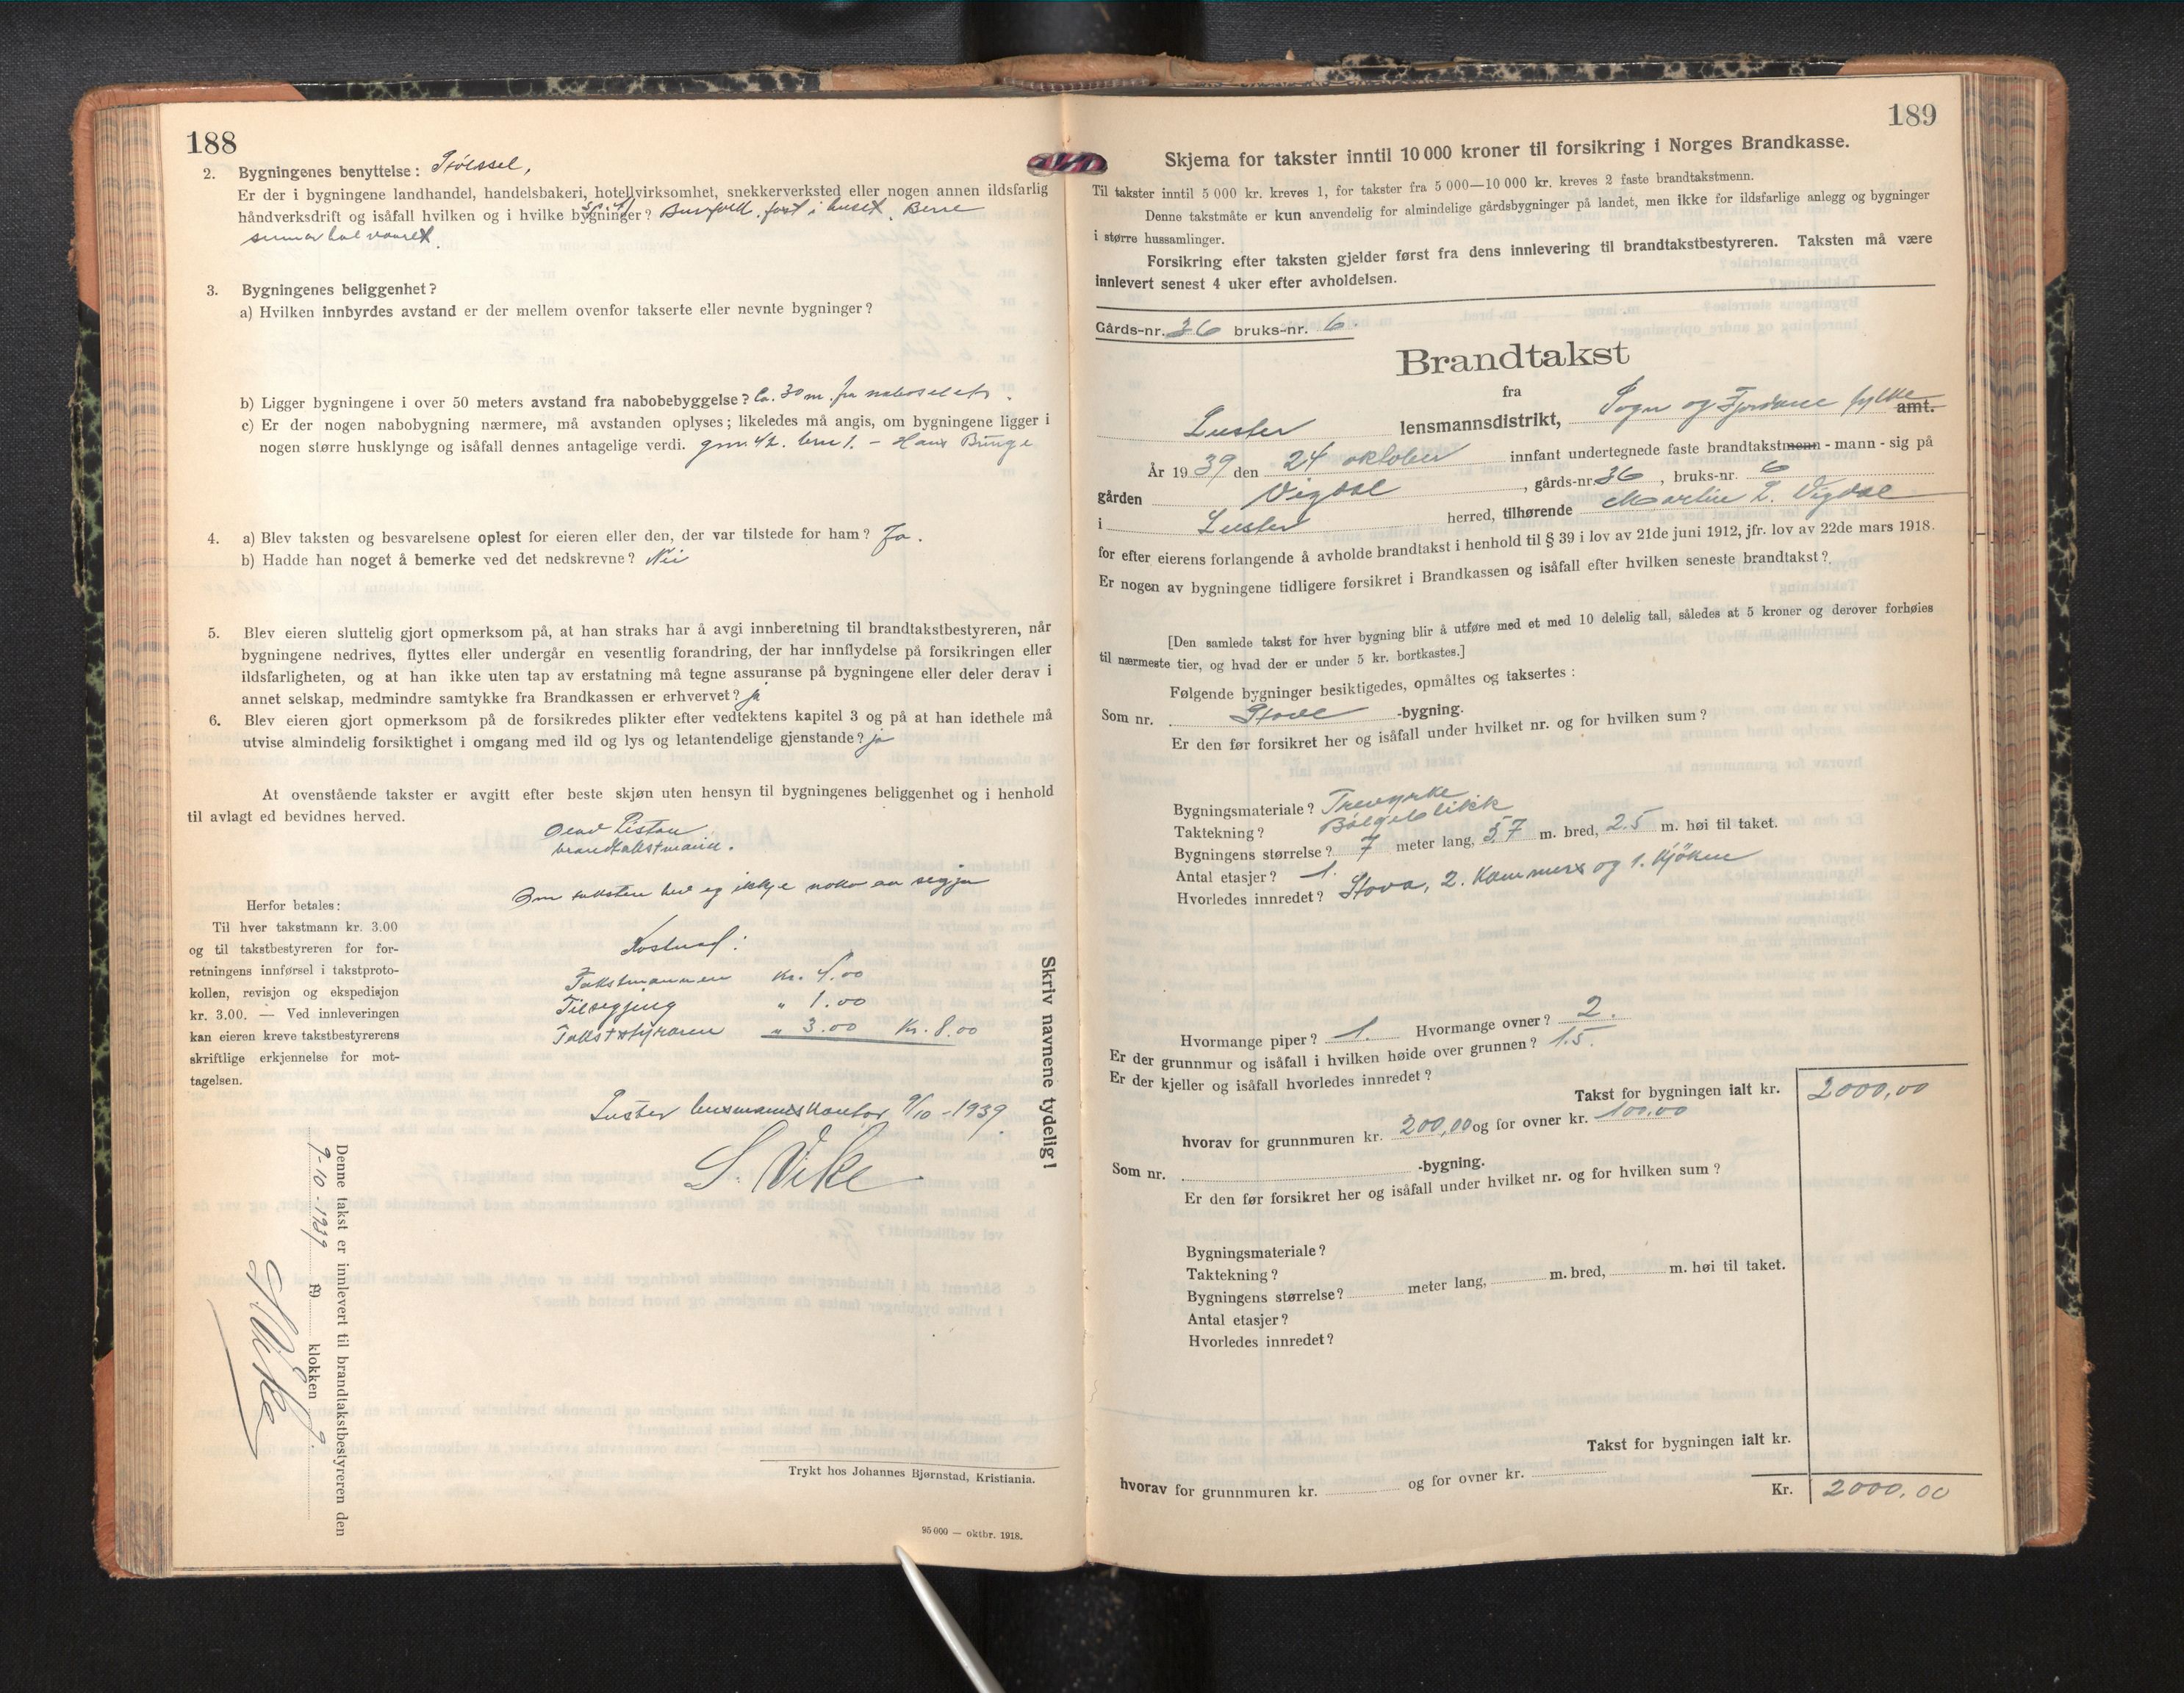 188
2. Bygningenes benyttelse: Stölssel,
Er der i bygningene landhandel, handelsbakeri, hotellvirksomhet, snekkerverksted eller nogen annen ildsfarlig
håndverksdrift og isåfall hvilken og i hvilke bygninger? fast i huset. Berre
3. Bygningenes beliggenhet?
a) Hvilken innbyrdes avstand er der mellem ovenfor takserte eller nevnte bygninger?
b) Ligger bygningene i over 50 meters avstand fra nabobebyggelse? Ca. 30 m. fra naboselets.
c) Er der nogen nabobygning nærmere, må avstanden oplyses; likeledes må angis, om bygningene ligger i
nogen større husklynge og isåfall dennes antagelige verdi. bru 1. - Hans Bringe
4. a) Blev taksten og besvarelsene oplest for eieren eller den, der var tilstede for ham? Ja.
b) Hadde han noget å bemerke ved det nedskrevne? Nei
5. Blev eieren sluttelig gjort opmerksom på, at han straks har å avgi innberetning til brandtakstbestyreren, når
bygningene nedrives, flyttes eller undergår en vesentlig forandring, der har innflydelse på forsikringen eller
ildsfarligheten, og at han ikke uten tap av erstatning må tegne assuranse på bygningene eller deler derav i
annet selskap, medmindre samtykke fra Brandkassen er erhvervet? ja
6. Blev eieren gjort opmerksom på de forsikredes plikter efter vedtektens kapitel 3 og på at han idethele må
utvise almindelig forsiktighet i omgang med ild og lys og letantendelige gjenstande? ja
At ovenstående takster er avgitt efter beste skjøn uten hensyn til bygningenes beliggenhet og i henhold
til avlagt ed bevidnes herved.
brandtakstmann.
Om taksten hev eg ikkje noko aa segja
Herfor betales:
Til hver takstmann kr. 3.00
og til takstbestyreren for for-
retningens innførsel i takstproto-
kollen, revisjon og ekspedisjon
kr. 3.00. — Ved innleveringen
kan eieren kreve takstbestyrerens
skriftlige erkjennelse for mot-
tagelsen.
Kostnad:
Takstmannen Kr. 4.00
Tilsegjing " 1.00
Takststyraren " 3.00 Kr. 8.00
Luster lensmannskontor 9/10-1939.
S. Vike
Skriv navnene tydelig!
Denne takst er innlevert til brandtakstbestyreren den
9-10-1939 19 klokken 9.
S. Vike
Trykt hos Johannes Bjørnstad, Kristiania.
95 000 — oktbr. 1918.
189
Skjema for takster inntil 10 000 kroner til forsikring i Norges Brandkasse.
Til takster inntil 5 000 kr. kreves 1, for takster fra 5 000—10 000 kr. kreves 2 faste brandtakstmenn.
Denne takstmåte er kun anvendelig for almindelige gårdsbygninger på landet, men ikke for ildsfarlige anlegg og bygninger
i større hussamlinger.
Forsikring efter taksten gjelder først fra dens innlevering til brandtakstbestyreren. Taksten må være
innlevert senest 4 uker efter avholdelsen.
Gårds-nr. 36 bruks-nr. 6.
Brandtakst
fra
Luster lensmannsdistrikt, Sogn og Fjordane fylke amt.
År 1939 den 24 oktober innfant undertegnede faste brandtakstmenn - mann - sig på
gården Vigdal, gårds-nr. 36, bruks-nr. 6
i Luster herred, tilhørende Martin L. Vigdal
for efter eierens forlangende å avholde brandtakst i henhold til § 39 i lov av 21de juni 1912, jfr. lov av 22de mars 1918.
Er nogen av bygningene tidligere forsikret i Brandkassen og isåfall efter hvilken seneste brandtakst?
[Den samlede takst for hver bygning blir å utføre med et med 10 delelig tall, således at 5 kroner og derover forhøies
til nærmeste tier, og hvad der er under 5 kr. bortkastes.]
Følgende bygninger besiktigedes, opmåltes og taksertes:
Som nr. Stove -bygning.
Er den før forsikret her og isåfall under hvilket nr. og for hvilken sum?
Bygningsmateriale? Trevyrke
Taktekning? Bölgeblikk
Bygningens størrelse? 7 meter lang, 5,7 m. bred, 2.5 m. høi til taket.
Antal etasjer? 1.
Hvorledes innredet? Stova, 2. Kammers og 1. Kjöken
Hvormange piper? 1. Hvormange ovner? 2.
Er der grunnmur og isåfall i hvilken høide over grunnen? 1.5.
Er der kjeller og isåfall hvorledes innredet?
Takst for bygningen ialt kr. 2000,00
hvorav for grunnmuren kr. 200,00 og for ovner kr. 100,00
Som nr. -bygning.
Er den før forsikret her og isåfall under hvilket nr. og for hvilken sum?
Bygningsmateriale?
Taktekning?
Bygningens størrelse? meter lang, m. bred, m. høi til taket.
Antal etasjer?
Hvorledes innredet?
Takst for bygningen ialt kr.
hvorav for grunnmuren kr. og for ovner kr.
Kr. 2000.00